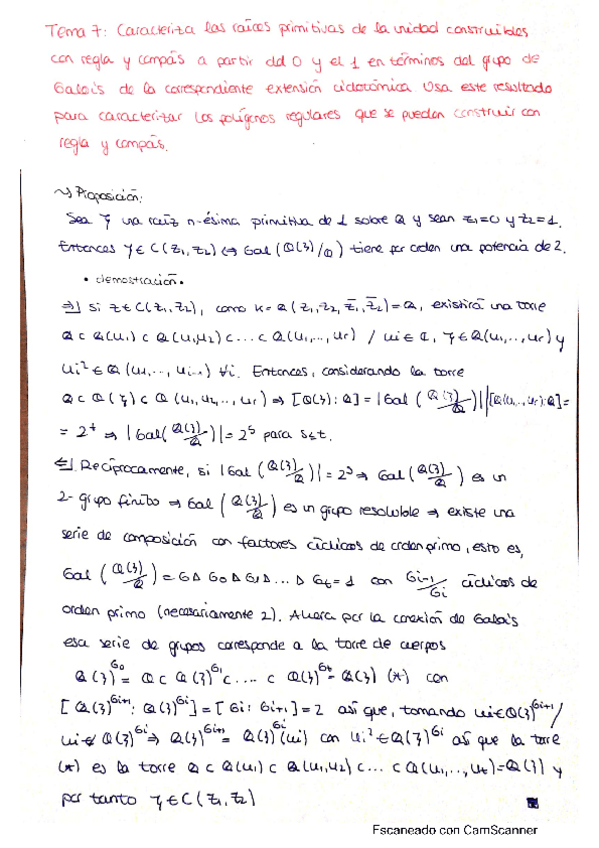 Tema 7: Caracteriza las raíces primitivas de la unidad construibles
con regla y compás a partir del 0 y el 1 en términos del grupo de
Galois de la correspondiente extensión ciclotómica Usa este resultado
para caracterizar los polígonos regulares que se puedan construir con
regla y compás.
~> Proposición:
Sea ζ una raíz n-ésima primitiva de 1 sobre Q y sean z₁=0 y z₂=1.
Entonces ζ∈C(z₁,z₂) ⇔ Gal(Q(ζ)/Q) tiene por orden una potencia de 2.
• demostración •
⇒| Si z∈C(z₁,z₂), como K=Q(z₁,z₂,z̄₁,z̄₂)=Q, existirá una torre
Q⊂Q(u₁)⊂Q(u₁,u₂)⊂...⊂Q(u₁,...,ur) / ui∈C, ζ∈Q(u₁,...,ur) y
ui²∈Q(u₁,...,ui-1) ∀i. Entonces, considerando la torre
Q⊂Q(ζ)⊂Q(u₁,u₂,...,ur) ⇒ [Q(ζ):Q]=|Gal(Q(ζ)/Q)| | [Q(u₁,...,ur):Q]=
=2^t ⇒ |Gal(Q(ζ)/Q)|=2^s para s≤t.
⇐| Recíprocamente, si |Gal(Q(ζ)/Q)|=2^s ⇒ Gal(Q(ζ)/Q) es un
2-grupo finito ⇒ Gal(Q(ζ)/Q) es un grupo resoluble ⇒ existe una
serie de composición con factores cíclicos de orden primo, esto es,
Gal(Q(ζ)/Q)=G▷G₀▷G₁▷...▷Gt=1 con Gi-1/Gi cíclicos de
orden primo (necesariamente 2). Ahora por la conexión de Galois
esa serie de grupos corresponde a la torre de cuerpos
Q(ζ)^G₀=Q⊂Q(ζ)^G₁⊂...⊂Q(ζ)^Gt=Q(ζ) (*) con
[Q(ζ)^Gi+1:Q(ζ)^Gi]=[Gi:Gi+1]=2 así que, tomando ui∈Q(ζ)^Gi+1/
ui∉Q(ζ)^Gi ⇒ Q(ζ)^Gi+1=Q(ζ)^Gi(ui) con ui²∈Q(ζ)^Gi así que la torre
(*) es la torre Q⊂Q(u₁)⊂Q(u₁,u₂)⊂...⊂Q(u₁,...,ut)=Q(ζ) y
por tanto ζ∈C(z₁,z₂)
Escaneado con CamScanner